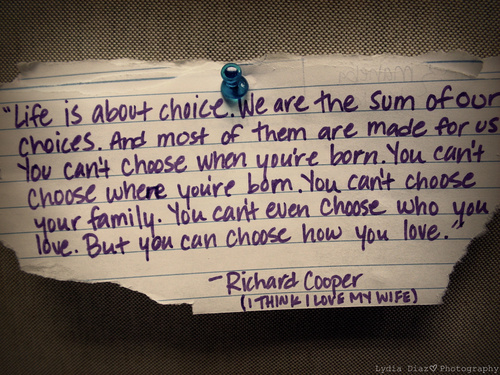 "Life is about choice. We are the sum of our
choices. And most of them are made for us
You can't choose when you're born. You can't
choose where you're born. You can't choose
your family. You can't even choose who you
love. But you can choose how you love."
- Richard Cooper
(I THINK I LOVE MY WIFE)
Lydia Diaz♡Photography